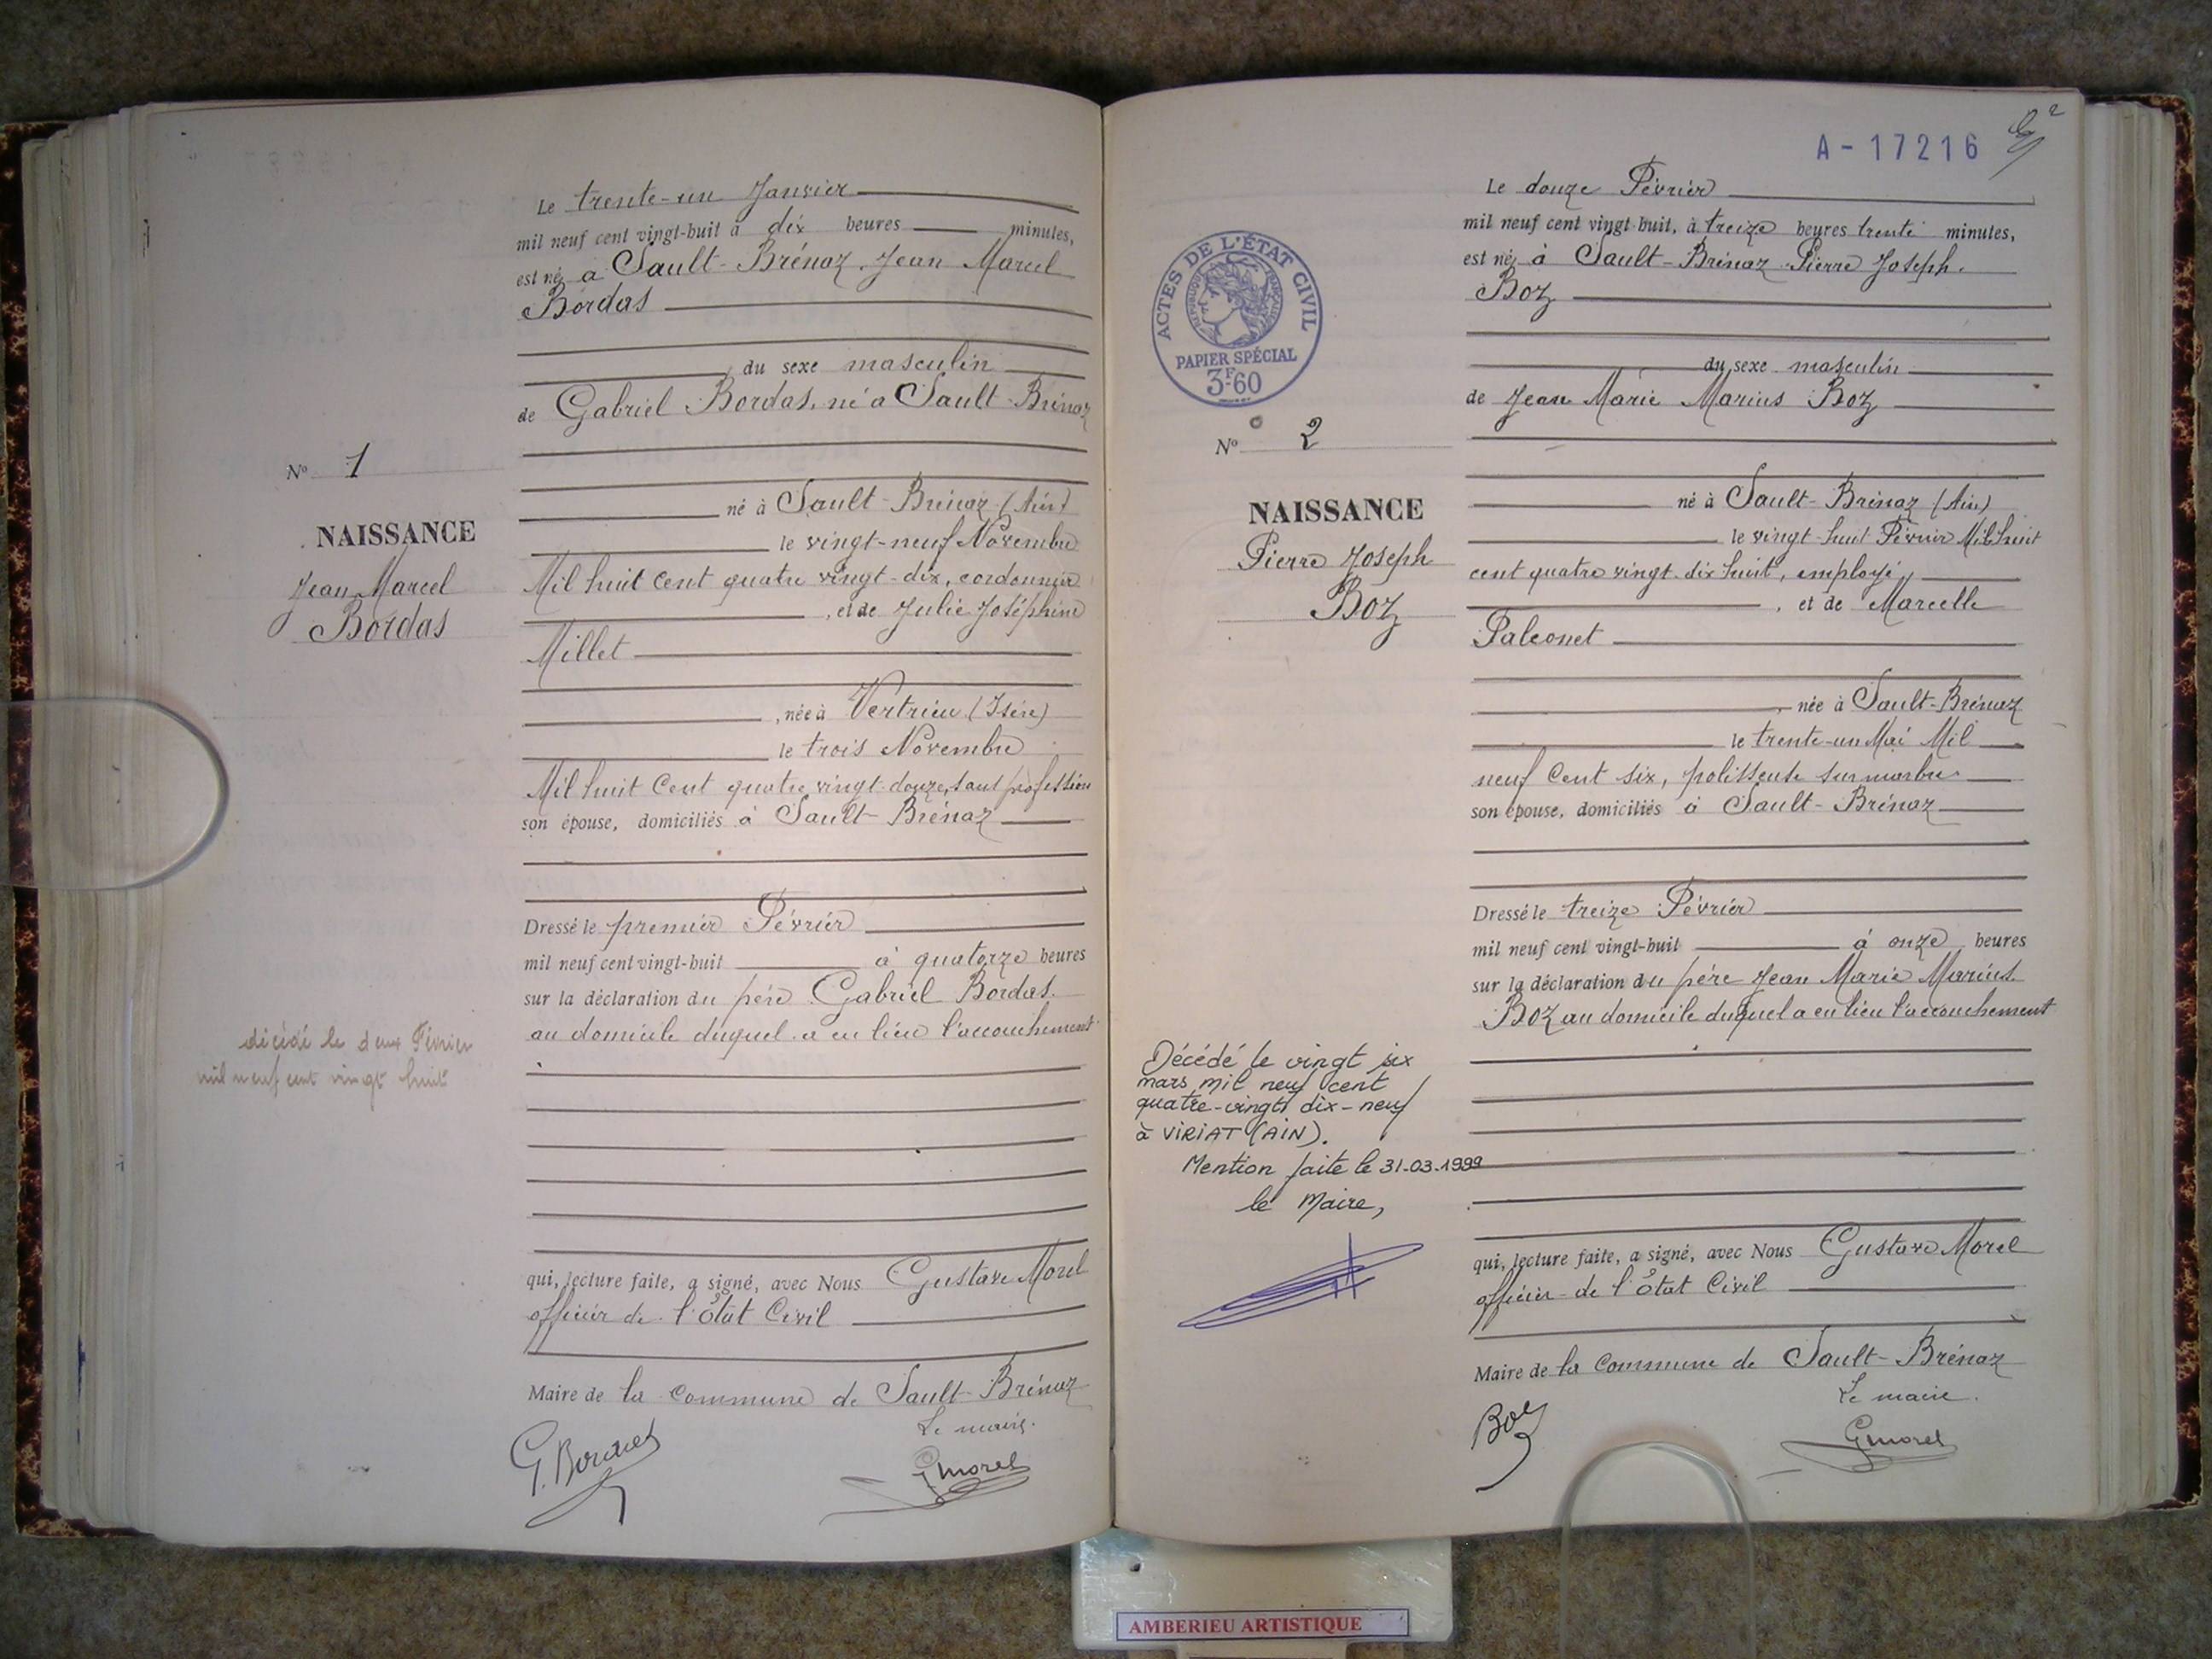 Le trente-un Janvier
mil neuf cent vingt-huit à dix heures minutes,
est né à Sault-Brénaz, Jean Marcel
Bordas
du sexe masculin
de Gabriel Bordas, né à Sault-Brénaz
né à Sault-Brénaz (Ain)
le vingt-neuf Novembre
Mil huit cent quatre vingt-dix, cordonnier
, et de Julie Joséphine
Millet
, née à Vertrieu (Isère)
le trois Novembre
Mil huit Cent quatre vingt-douze, sans profession
son épouse, domiciliés à Sault-Brénaz
Dressé le premier Février
mil neuf cent vingt-huit à quatorze heures
sur la déclaration du père Gabriel Bordas.
au domicile duquel a eu lieu l'accouchement
qui, lecture faite, a signé, avec Nous Gustave Morel
officier de l'État Civil
Maire de la Commune de Sault-Brénaz
Le maire.
G. Bordas
G Morel
No 1
NAISSANCE
Jean Marcel
Bordas
décédé le deux Février
mil neuf cent vingt huit
A-17216
Le douze Février
mil neuf cent vingt-huit, à treize heures trente minutes,
est né à Sault-Brénaz Pierre Joseph.
Boz
du sexe masculin
de Jean Marie Marius Boz
né à Sault-Brénaz (Ain)
le vingt-huit Février Mil huit
cent quatre vingt-dix huit, employé
, et de Marcelle
Falconet
, née à Sault-Brénaz
le trente-un Mai Mil
neuf Cent six, polisseuse sur marbre
son épouse, domiciliés à Sault-Brénaz
Dressé le treize Février
mil neuf cent vingt-huit à onze heures
sur la déclaration du père Jean Marie Marius
Boz au domicile duquel a eu lieu l'accouchement
qui, lecture faite, a signé, avec Nous Gustave Morel
officier de l'État Civil
Maire de la Commune de Sault-Brénaz
Le maire.
Boz
G Morel
ACTES DE L'ÉTAT CIVIL
RÉPUBLIQUE FRANÇAISE
PAPIER SPÉCIAL
3F.60
No 2
NAISSANCE
Pierre Joseph
Boz
Décédé le vingt six
mars mil neuf cent
quatre-vingt dix-neuf
à VIRIAT (AIN).
Mention faite le 31-03-1999
le Maire,
AMBERIEU ARTISTIQUE